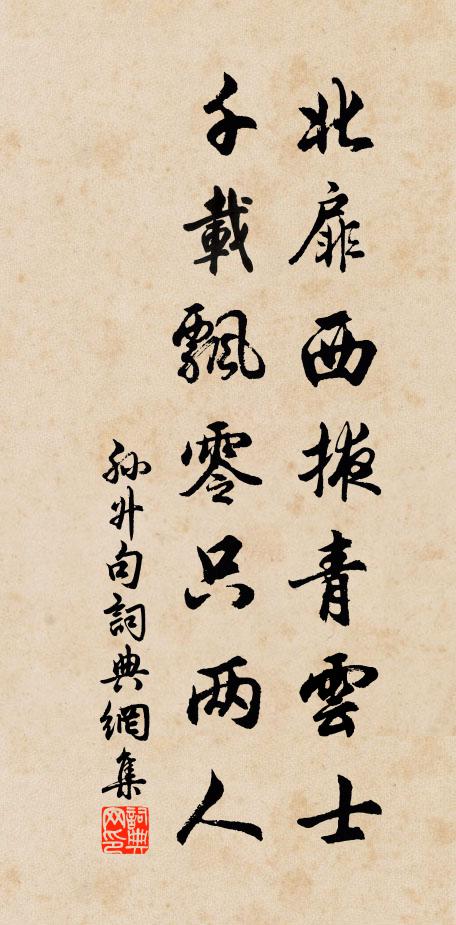 北扉西掖青雲士
千載飄零只两人
孙升句詞典網集
詞典网印